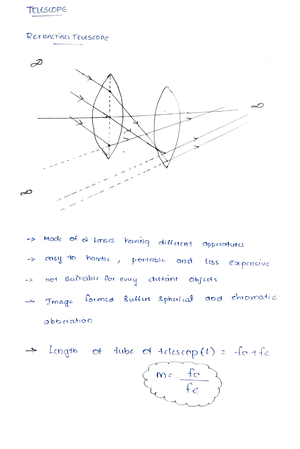 TELESCOPE
REFRACTING TELESCOPE
∞
∞
∞
-> Made of 2 lenses having different apperatures
-> easy to handle, portable and less expensive
-> not suitable for every distant objects
-> Image formed suffers spherical and chromatic
abberation
-> Length of tube of telescop(L) = fo+fe
m = fo
fe